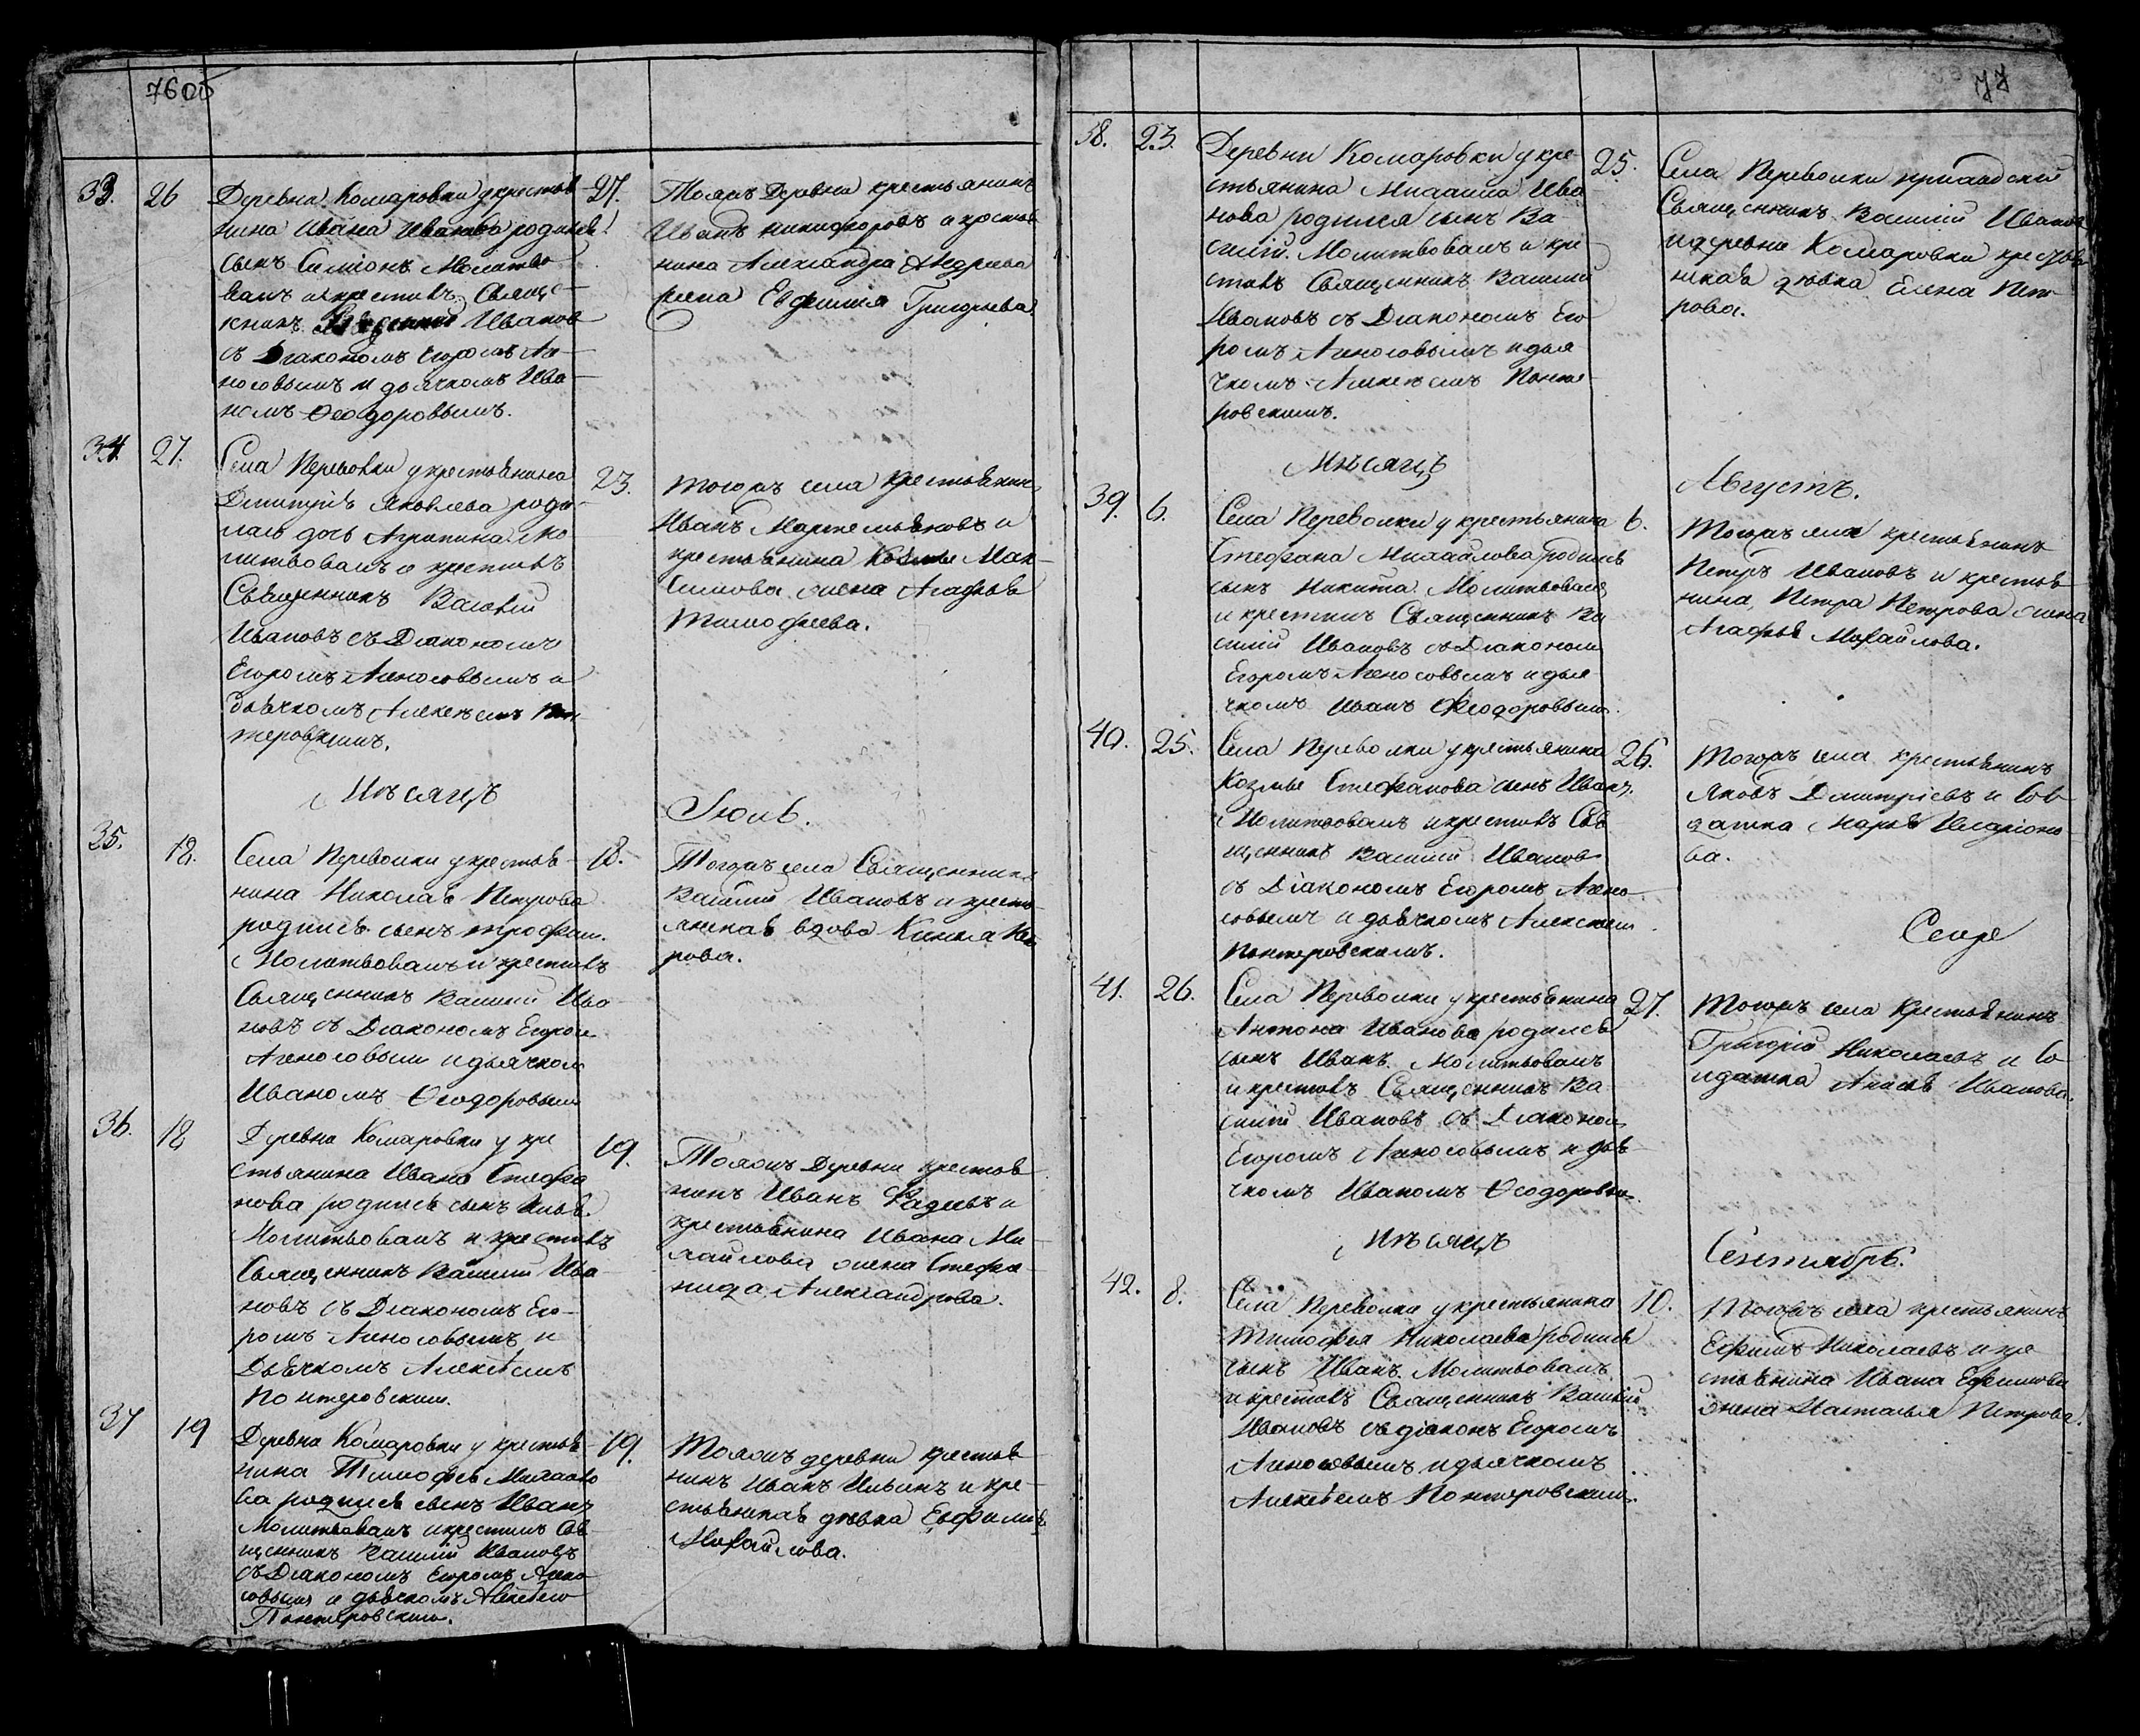 76об
33. 26 Деревни Комаровки у крестья- 27.
нина Ивана Иванова родился
сынъ Симіонъ Молитво
валъ и крестилъ Свяще-
нникъ Ивановъ
съ Діакономъ Егоромъ Аг-
носовымъ и дьячкомъ Ива-
номъ Ѳеодоровымъ.
Тояжъ Деревни крестьянинъ
Иванъ Никифоровъ и крестья
нина Александра Андреева
жена Евфимия Григорьева
34. 27. Села Переволки у крестьянина 23.
Дмитрія Яковлева роди-
лась дочь Агрипина. Мо
литвовалъ и крестилъ
Священникъ Василій
Ивановъ съ Діакономъ
Егоромъ Агносовымъ и
дьячкомъ Алексеемъ Пон
теровскимъ.
тогожъ села крестьянинъ
Иванъ Мартемьяновъ и
крестьянина Козмы Мак-
симова жена Агафья
Тимофеева.
Мѣсяцъ
Іюль.
35. 18. Села Переволки у крестья- 18.
нина Николая Петрова
родился сынъ Трофим.
Молитвовалъ и крестилъ
Священникъ Василій Ива
новъ съ Діакономъ Егором
Агносовым и дьячком
Иваномъ Ѳеодоровым
Тогожъ села Священникъ
Василій Ивановъ и кресть
янская вдова
рова.
36. 18 Деревни Комаровки у кре 19.
стьянина Ивана Стефа
нова родился сынъ Илья.
Молитвовалъ и крестилъ
Священникъ Василій Ива-
новъ съ Діакономъ Его-
ромъ Агносовымъ и
Дьячкомъ Алексеемъ
Понтеровским.
Тояжъ Деревни крестья
нинъ Иванъ и
крестьянина Ивана Ми-
хайлова жена Стефа-
нида Александрова.
37 19 Деревни Комаровки у крестья- 19.
нина Тимофея Михайло
ва родился сынъ Иванъ
Молитвовалъ и крестилъ Свя
щенникъ Василій Ивановъ
съ Діакономъ Егоромъ Агно
совым и дьячкомъ Алексеем
Понтеровским.
Тояжъ деревни крестья
нинъ Иванъ Ильинъ и кре-
стьянская дѣвка Евфимія
Михайлова.
77
38. 23. Деревни Комаровки у кре- 25.
стьянина Михаила Ива
нова родился сынъ Ва-
силій. Молитвовалъ и кре
стилъ Священникъ Василій
Ивановъ съ Діакономъ Его
ромъ Агносовымъ и дья
чкомъ Алексеемъ Понте-
ровскимъ.
Села Переволки приходскій
Священникъ Василій Иванов
и деревни Комаровки крестья
нская дѣвка Елена Пет
рова.
Мѣсяцъ
Августъ.
39. 6. Села Переволки у крестьянина 6.
Стефана Михайлова родился
сынъ Никита. Молитвовалъ
и крестилъ Священникъ Ва
силій Ивановъ съ Діаконом
Егоромъ Агносовымъ и дья-
чкомъ Иванъ Ѳеодоровым.
Тогожъ села крестьянинъ
Петръ Ивановъ и крестья
нина Петра Петрова жена
Агафья Михайлова.
40. 25. Села Переволки у крестьянина 26.
Козмы Стефанова сынъ Иванъ.
Молитвовалъ и крестилъ Свя
щенникъ Василій Ивановъ
съ Діакономъ Егоромъ Агно-
совымъ и дьячкомъ Алексеем
Понтеровскимъ.
Тогожъ села крестьянинъ
Яковъ Дмитріевъ и Сол
датка Марья Иларіоно
ва.
41. 26. Села Переволки у крестьянина 27.
Антона Иванова родился
сынъ Иванъ. Молитвовалъ
и крестилъ Священникъ Ва
силій Ивановъ съ Діаконом
Егоромъ Агносовымъ и дья
чкомъ Иваномъ Ѳеодоровым.
Тогожъ села Крестьянинъ
Григорій Николаевъ и Со
лдатка Анисья Иванова.
Мѣсяцъ
Сентябрь.
42. 8. Села Переволки у крестьянина 10.
Тимофея Николаева родился
сынъ Иванъ. Молитвовалъ
и крестилъ Священникъ Василій
Ивановъ съ діаконъ Егоромъ
Агносовымъ и дьячкомъ
Алексеемъ Понтеровским.
Тогожъ села крестьянинъ
Ефимъ Николаевъ и кре
стьянина Ивана Ефимова
жена Настасья Петрова.